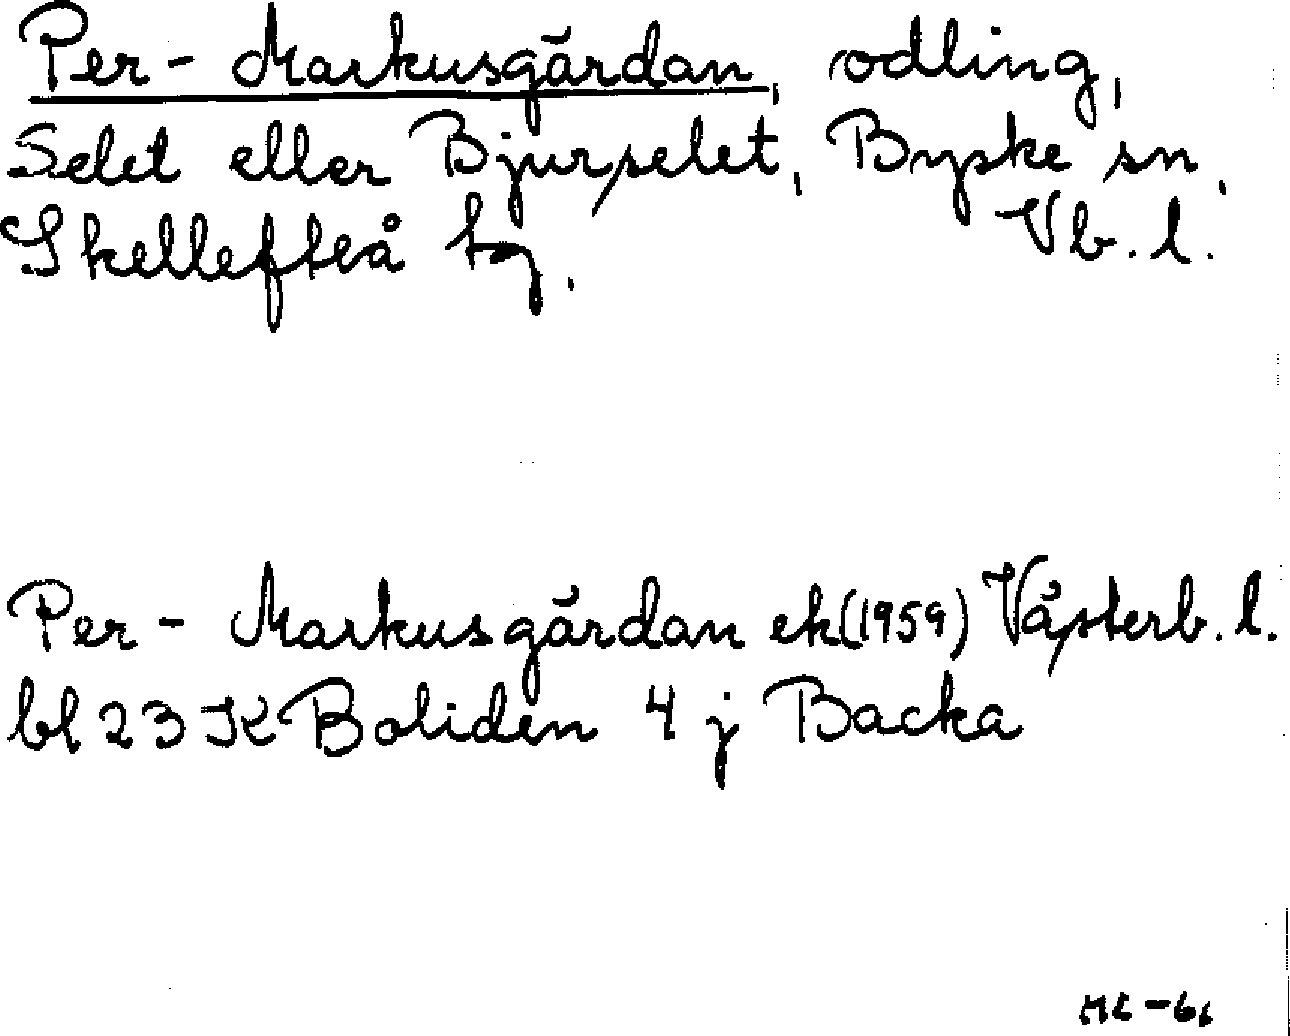 Per-Markusgärdan, odling,
Selet eller Bjurselet, Byske sn,
Skellefteå tg, Vb. l.
Per-Markusgärdan ek (1959) Västerb. l.
bl 23 K Boliden 4 j Backa